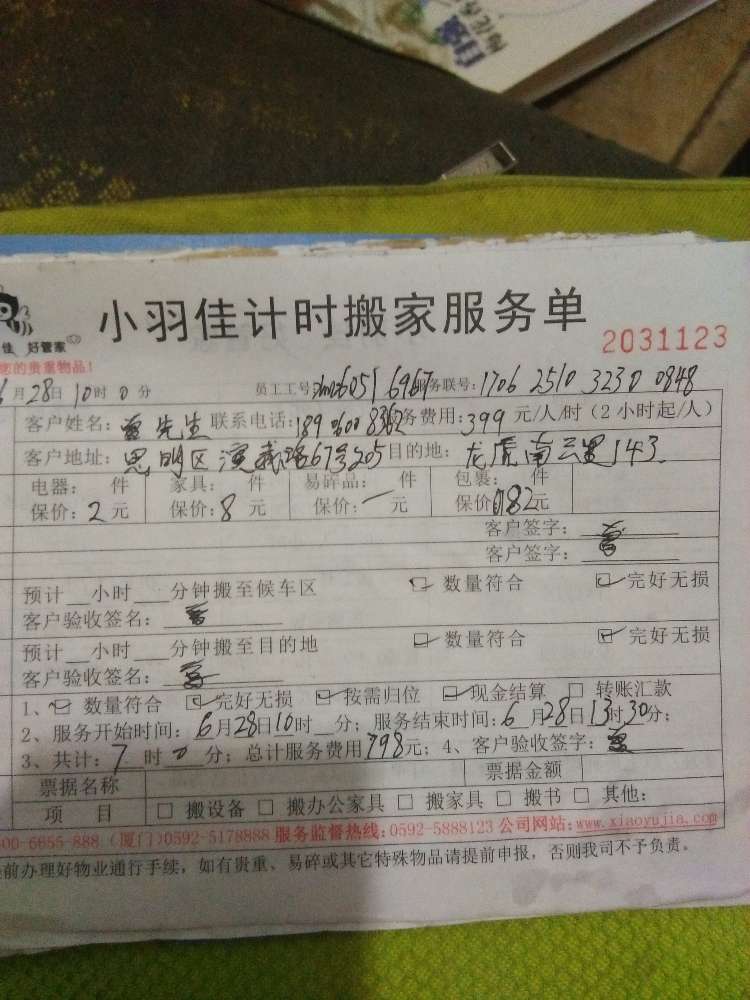 小羽佳计时搬家服务单
2031123
佳 好管家
您的贵重物品!
6月28日10时0分 员工工号: 服务联号:1706 2510 3230 0848
客户姓名: 先生 联系电话: 服务费用:399元/人/时(2小时起/人)
客户地址:思明区演武路67号205 目的地:龙虎南三里143
电器: 件 家具: 件 易碎品: 件 包裹: 件
保价:2元 保价:8元 保价:一元 保价: 元
客户签字:
客户签字:
预计__小时___分钟搬至候车区 ☑数量符合 ☑完好无损
客户验收签名:
预计__小时___分钟搬至目的地 ☑数量符合 ☑完好无损
客户验收签名:
1、☑数量符合 ☑完好无损 ☑按需归位 ☑现金结算 □转账汇款
2、服务开始时间:6月28日10时__分; 服务结束时间:6月28日13时30分;
3、共计:7时0分; 总计服务费用798元; 4、客户验收签字:
票据名称 票据金额
项 目 □搬设备 □搬办公家具 □搬家具 □搬书 □其他:
00-6655-888 (厦门)0592-5178888 服务监督热线:0592-5888123 公司网站:www.xiaoyujia.com
前办理好物业通行手续,如有贵重、易碎或其它特殊物品请提前申报,否则我司不予负责。